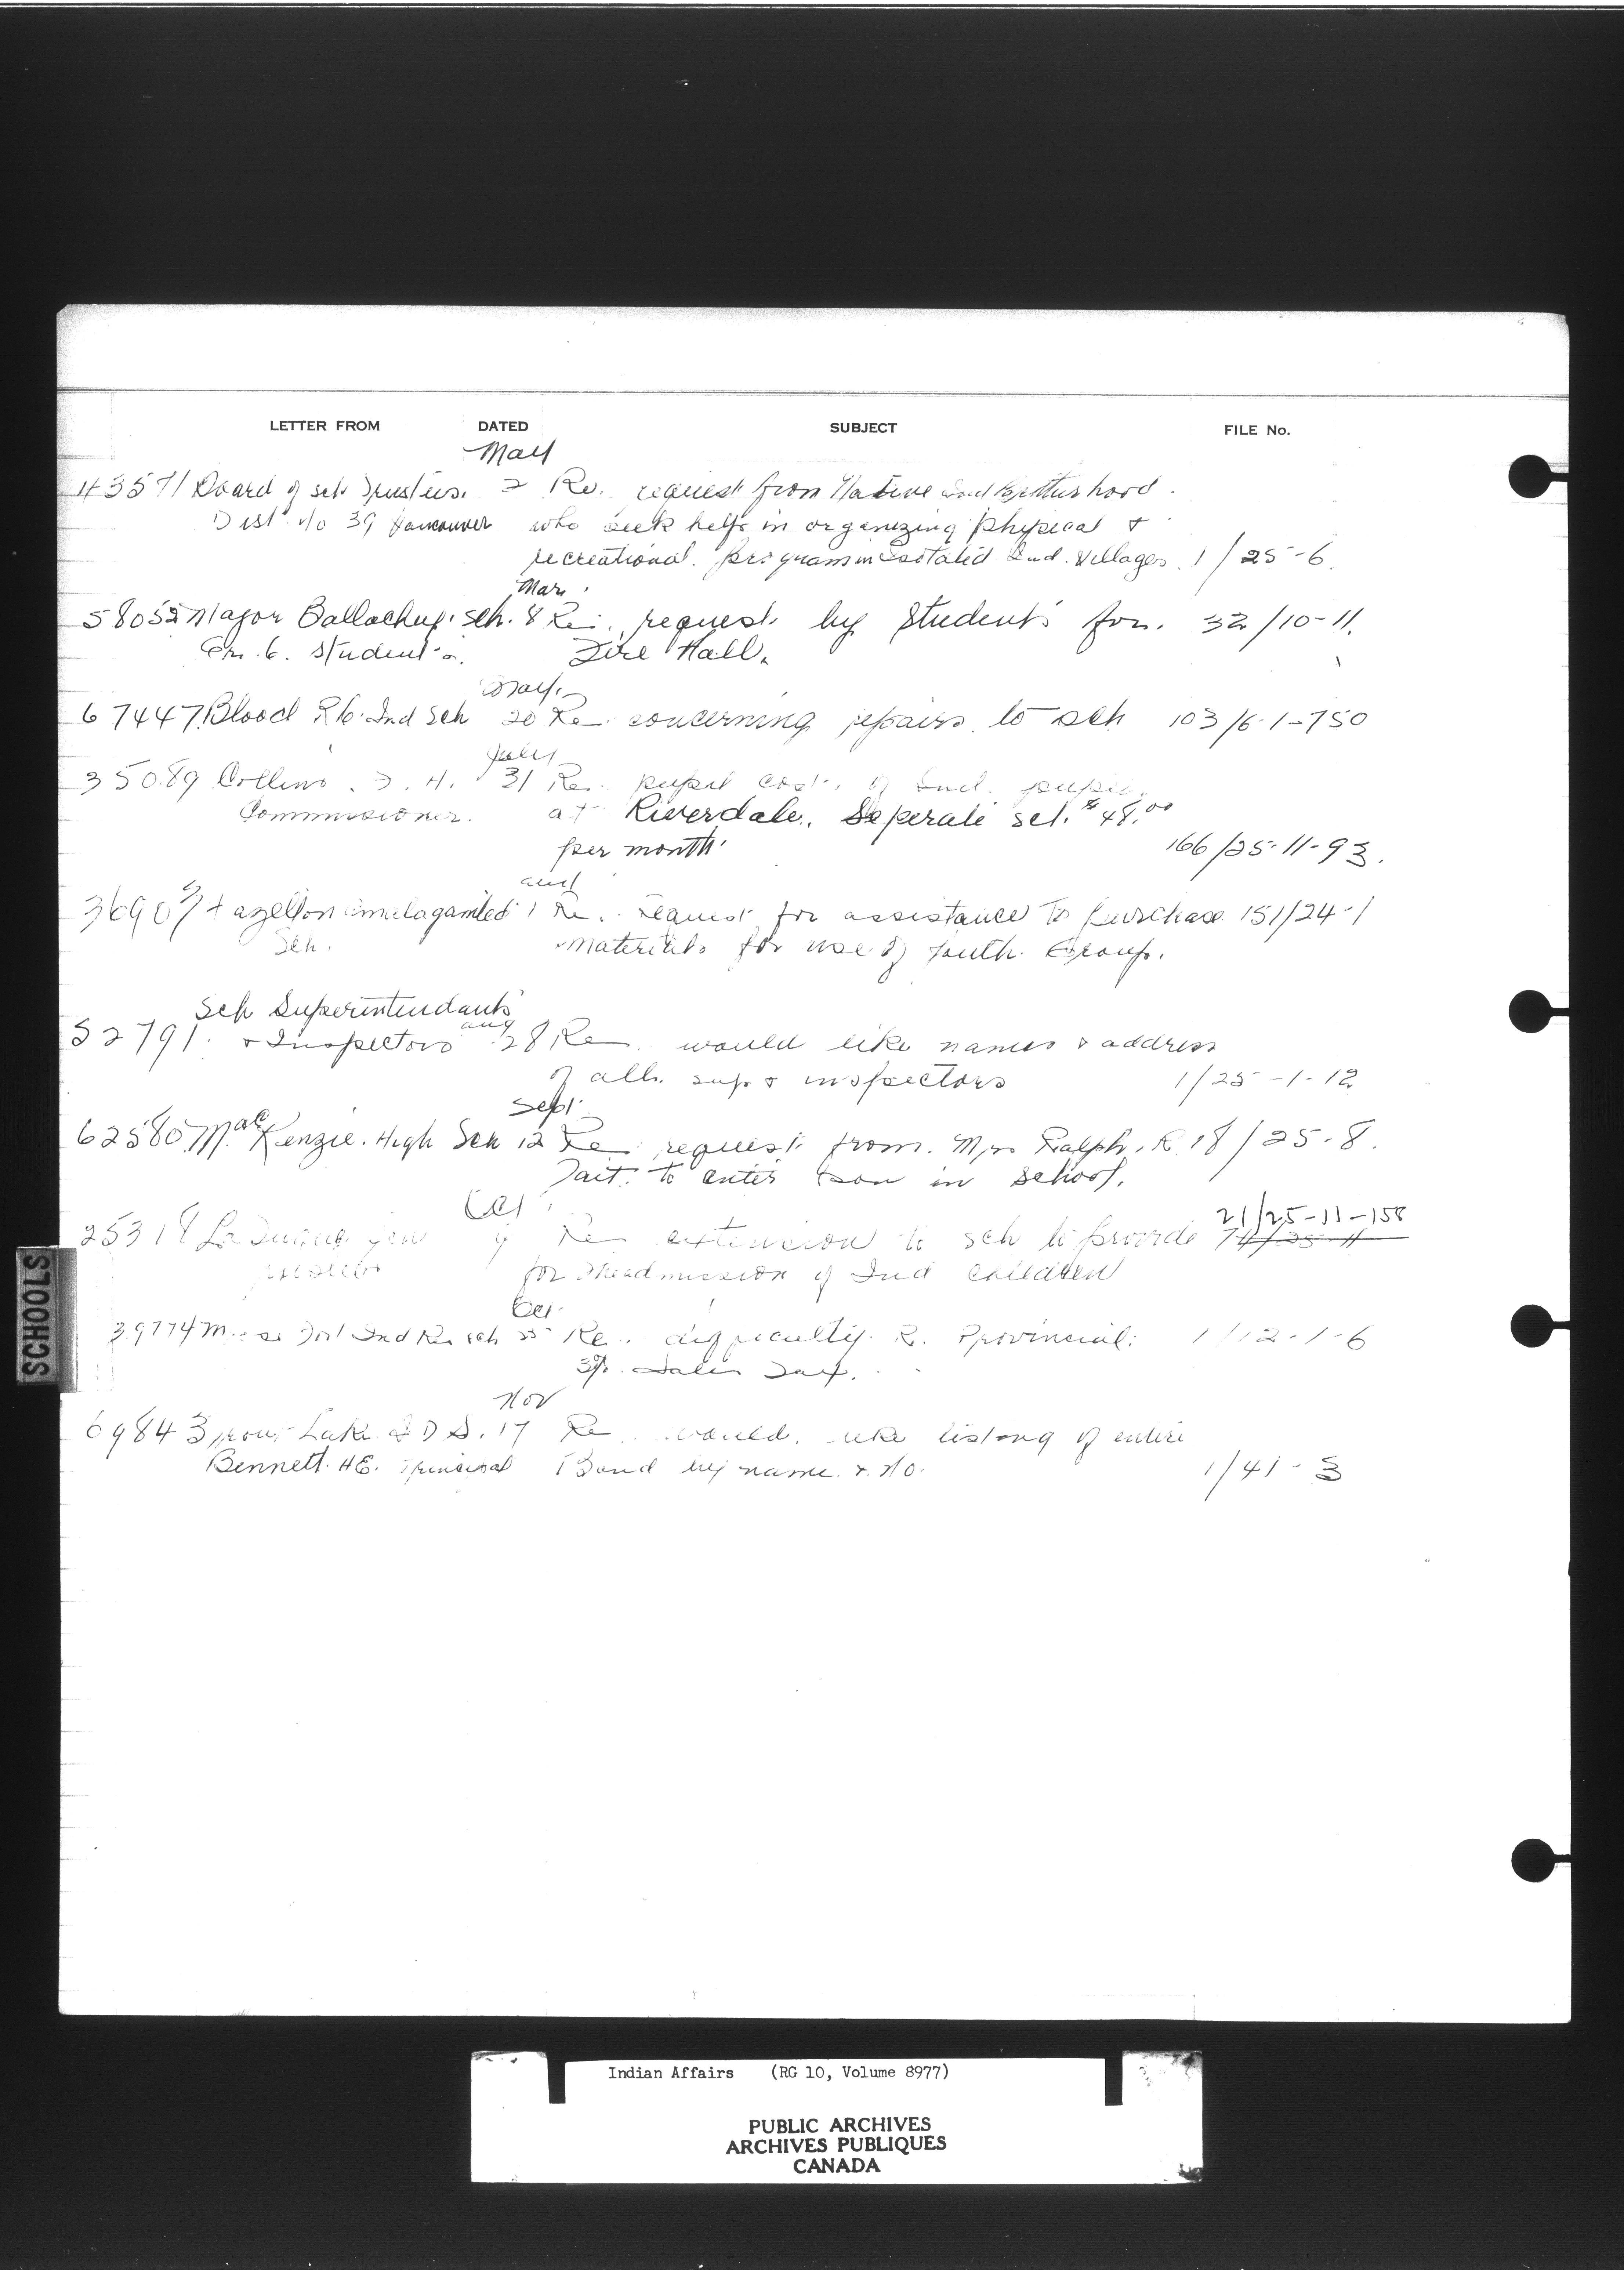 LETTER FROM DATED SUBJECT FILE No.
May
43571 Board of sch Trustees. 2 Re. request from Native Ind Brotherhood.
Dist No 39 Vancouver who seek help in organizing physical &
recreational. program in Isolated Ind. Villages. 1/25-6.
Mar.
58052 Major Ballachey. Sch. 8 Re. request by students for. 32/10-11.
Gr. 6. students. Fire Hall.
May.
67447 Blood R.C. Ind Sch 20 Re concerning repairs to sch 103/6-1-750
July
35089 Collins. J. H. 31 Re. pupil cost. of Ind. pupils
Commissioner. at Riverdale. Seperate sch. $48.00
per month. 166/25-11-93.
aug
36907 Hazelton amalagamted 1 Re. request for assistance to purchase 151/24-1
Sch. materials for use of youth Group.
Sch Superintendants
aug
52791. & Inspectors 28 Re would like names & address
of all. sup & inspectors 1/25-1-12
Sept.
62580 MacKenzie. High Sch 12 Re request from. Mrs Ralph. R. 18/25-8.
Tait. to enter son in school.
Oct.
21/25-11-158
25318 9 Re extension to sch to provide 74/25-11
for admission of Ind children
Oct.
39774 Moose Fort Ind Res sch 25 Re. difficulty R. Provincial. 1/12-1-6
3% Sales Tax.
Nov
69843 Lake I D S. 17 Re. would. like listong of entire
Bennett. H E. principal Band by name & No. 1/41-3
SCHOOLS
Indian Affairs (RG 10, Volume 8977)
PUBLIC ARCHIVES
ARCHIVES PUBLIQUES
CANADA